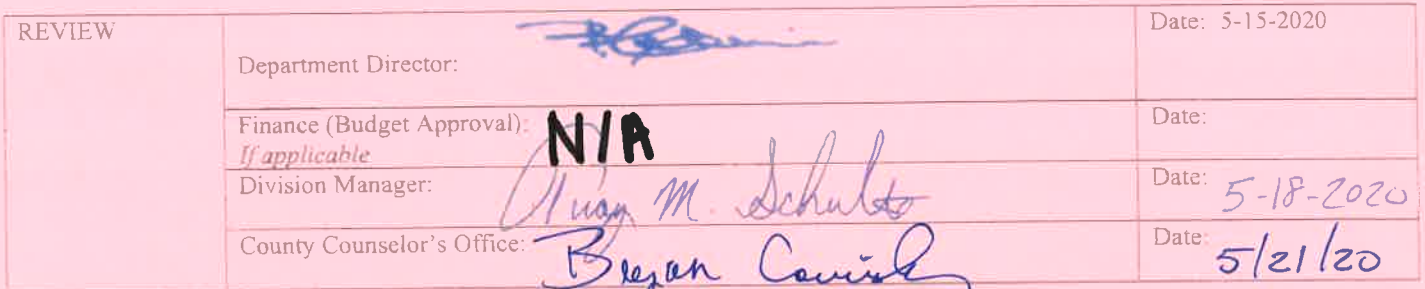 REVIEW
Department Director:
Date: 5-15-2020
Finance (Budget Approval): N/A
If applicable
Date:
Division Manager: M. Schultz
Date: 5-18-2020
County Counselor's Office: Bryan
Date: 5/21/20